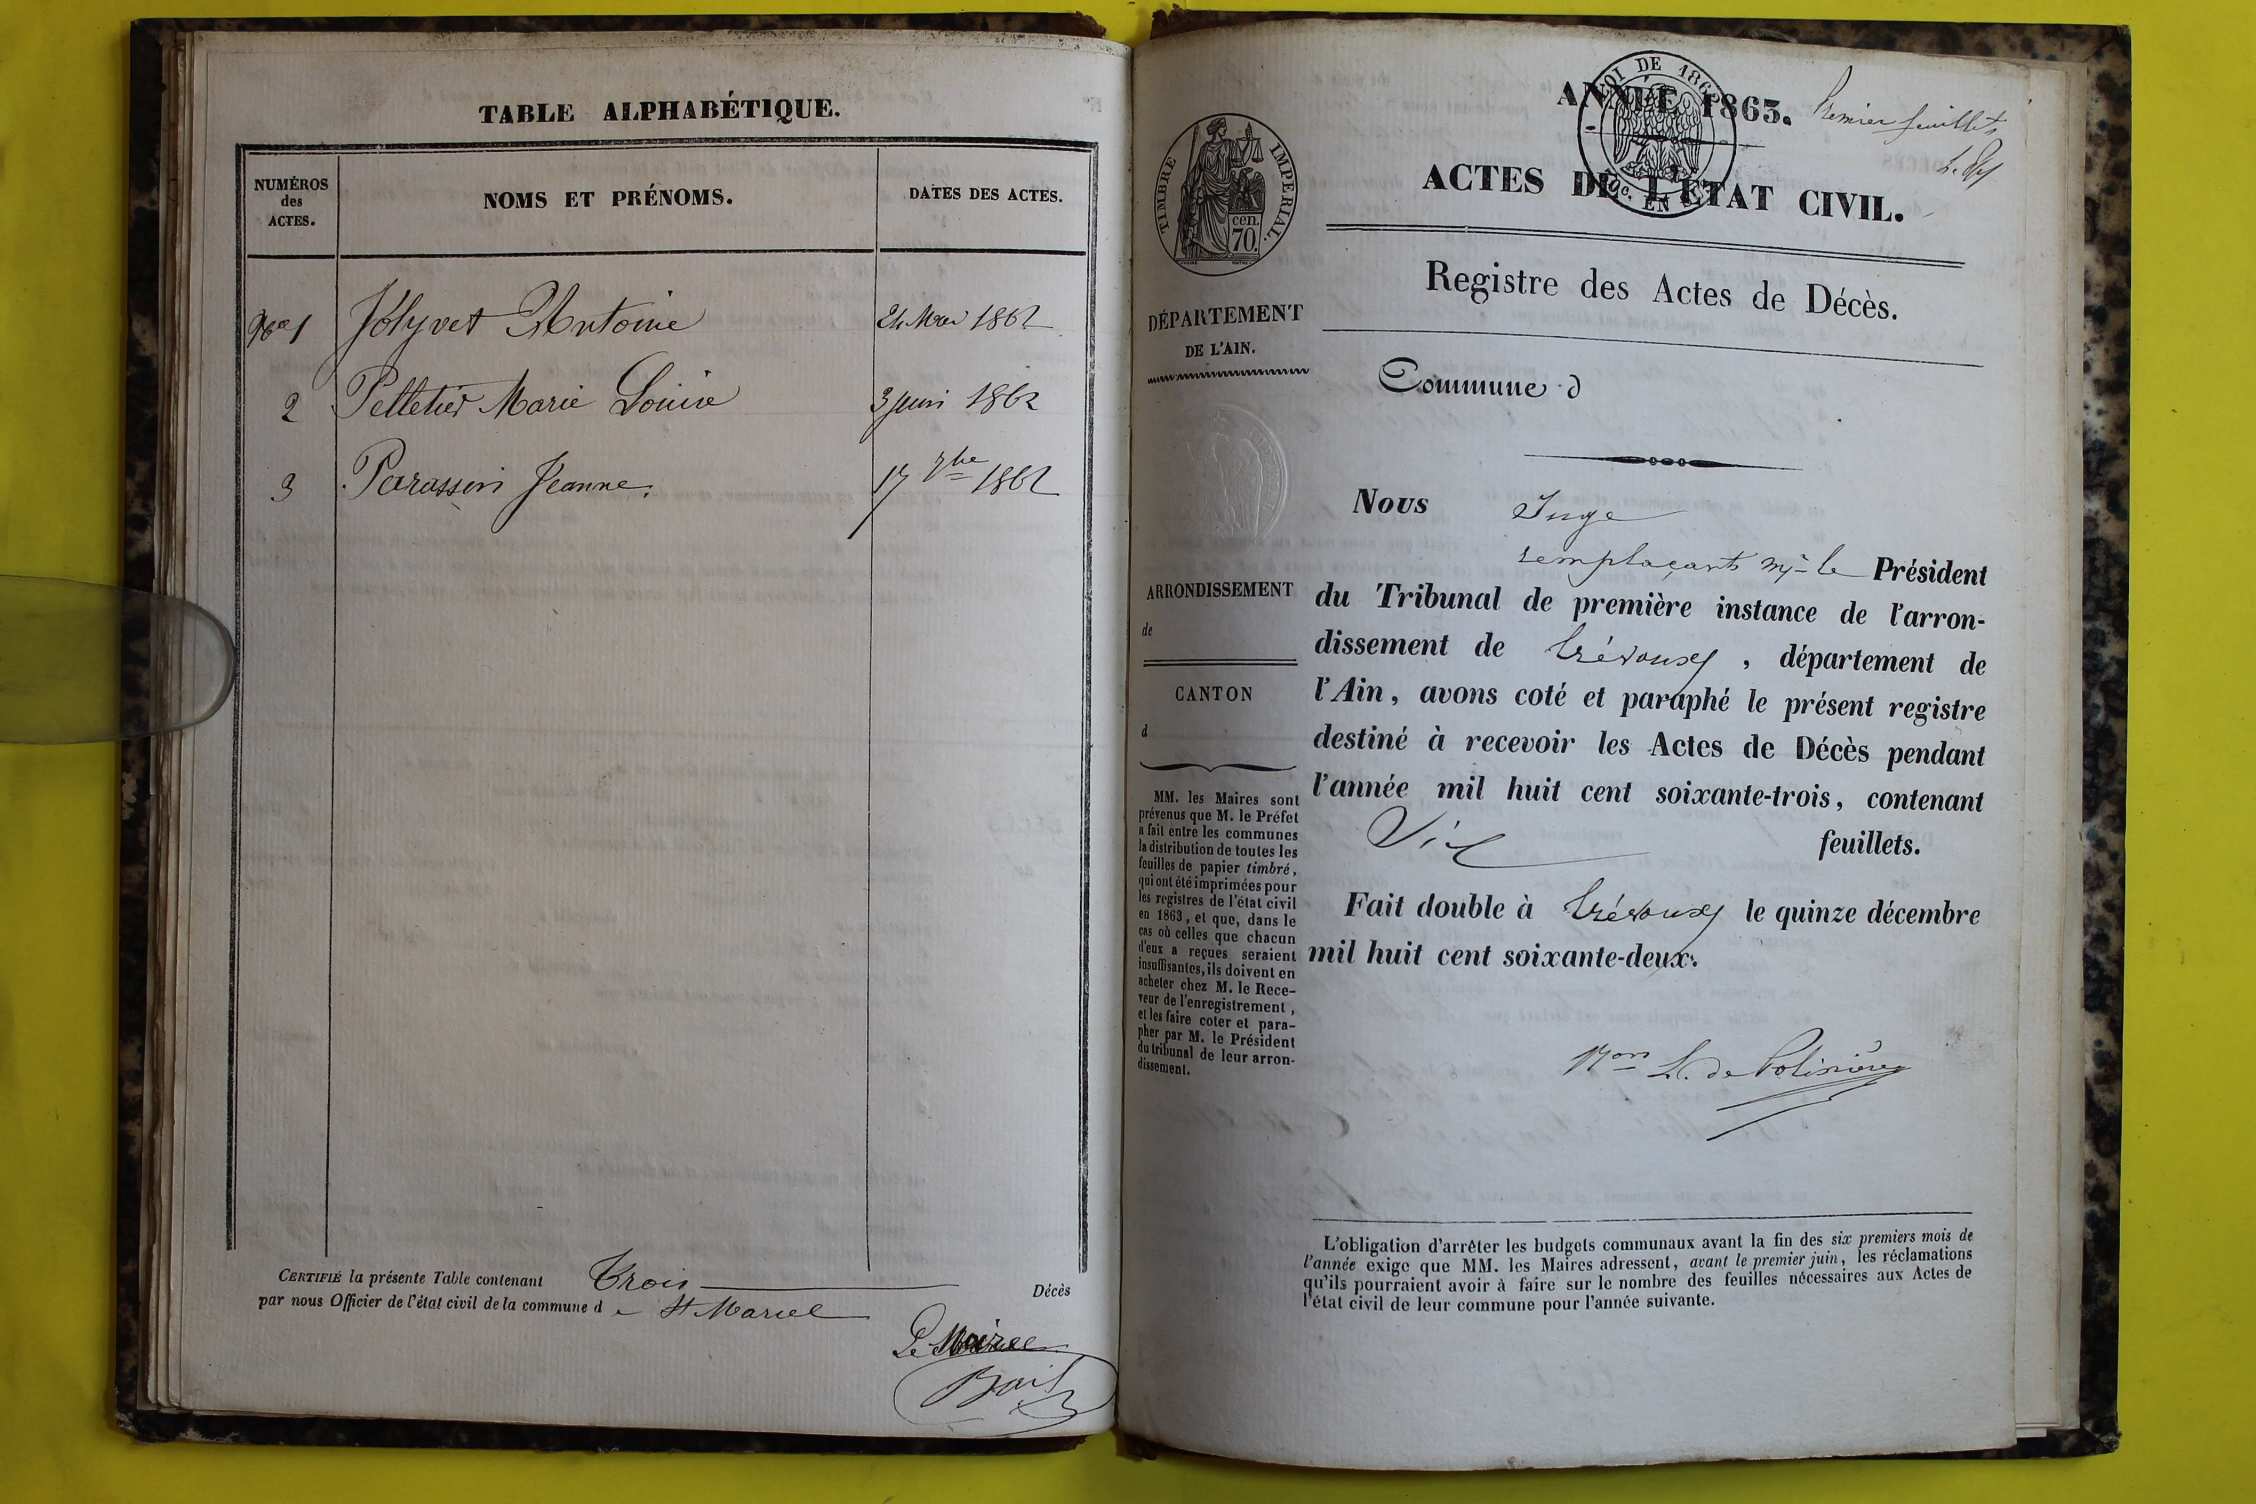 TABLE ALPHABÉTIQUE.
NUMÉROS
des
ACTES.
NOMS ET PRÉNOMS.
DATES DES ACTES.
1 Jolyvet Antoine 1862
2 Pelletier Marie Louise 3 juin 1862
3 Parassin Jeanne. 17 7bre 1862
CERTIFIÉ la présente Table contenant Trois Décès
par nous Officier de l'état civil de la commune d e St Marcel
Le Maire
ANNÉE 1863.
LOI DE 1862
Premier feuillet
ACTES DE L'ÉTAT CIVIL.
TIMBRE IMPÉRIAL.
cen.
70.
Registre des Actes de Décès.
DÉPARTEMENT
DE L'AIN.
Commune d
Nous Juge
remplaçant mr le Président
du Tribunal de première instance de l'arron-
dissement de Trévoux, département de
l'Ain, avons coté et paraphé le présent registre
destiné à recevoir les Actes de Décès pendant
l'année mil huit cent soixante-trois, contenant
Six feuillets.
Fait double à Trévoux le quinze décembre
mil huit cent soixante-deux.
L. de Polinière
ARRONDISSEMENT
de
CANTON
d
MM. les Maires sont
prévenus que M. le Préfet
a fait entre les communes
la distribution de toutes les
feuilles de papier timbré,
qui ont été imprimées pour
les registres de l'état civil
en 1863, et que, dans le
cas où celles que chacun
d'eux a reçues seraient
insuffisantes, ils doivent en
acheter chez M. le Rece-
veur de l'enregistrement,
et les faire coter et para-
pher par M. le Président
du tribunal de leur arron-
dissement.
L'obligation d'arrêter les budgets communaux avant la fin des six premiers mois de
l'année exige que MM. les Maires adressent, avant le premier juin, les réclamations
qu'ils pourraient avoir à faire sur le nombre des feuilles nécessaires aux Actes de
l'état civil de leur commune pour l'année suivante.